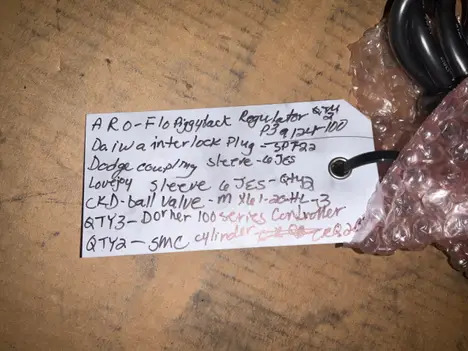 ARO-Flo Piggyback Regulator QTY 2
P39124-100
Daiwa interlock Plug - SPT22
Dodge coupling sleeve - 6JES
Lovejoy sleeve 6 JES - Qty2
CKD-ball valve -
QTY3 - Dorner 100 series Controller
QTY2 - SMC cylinder